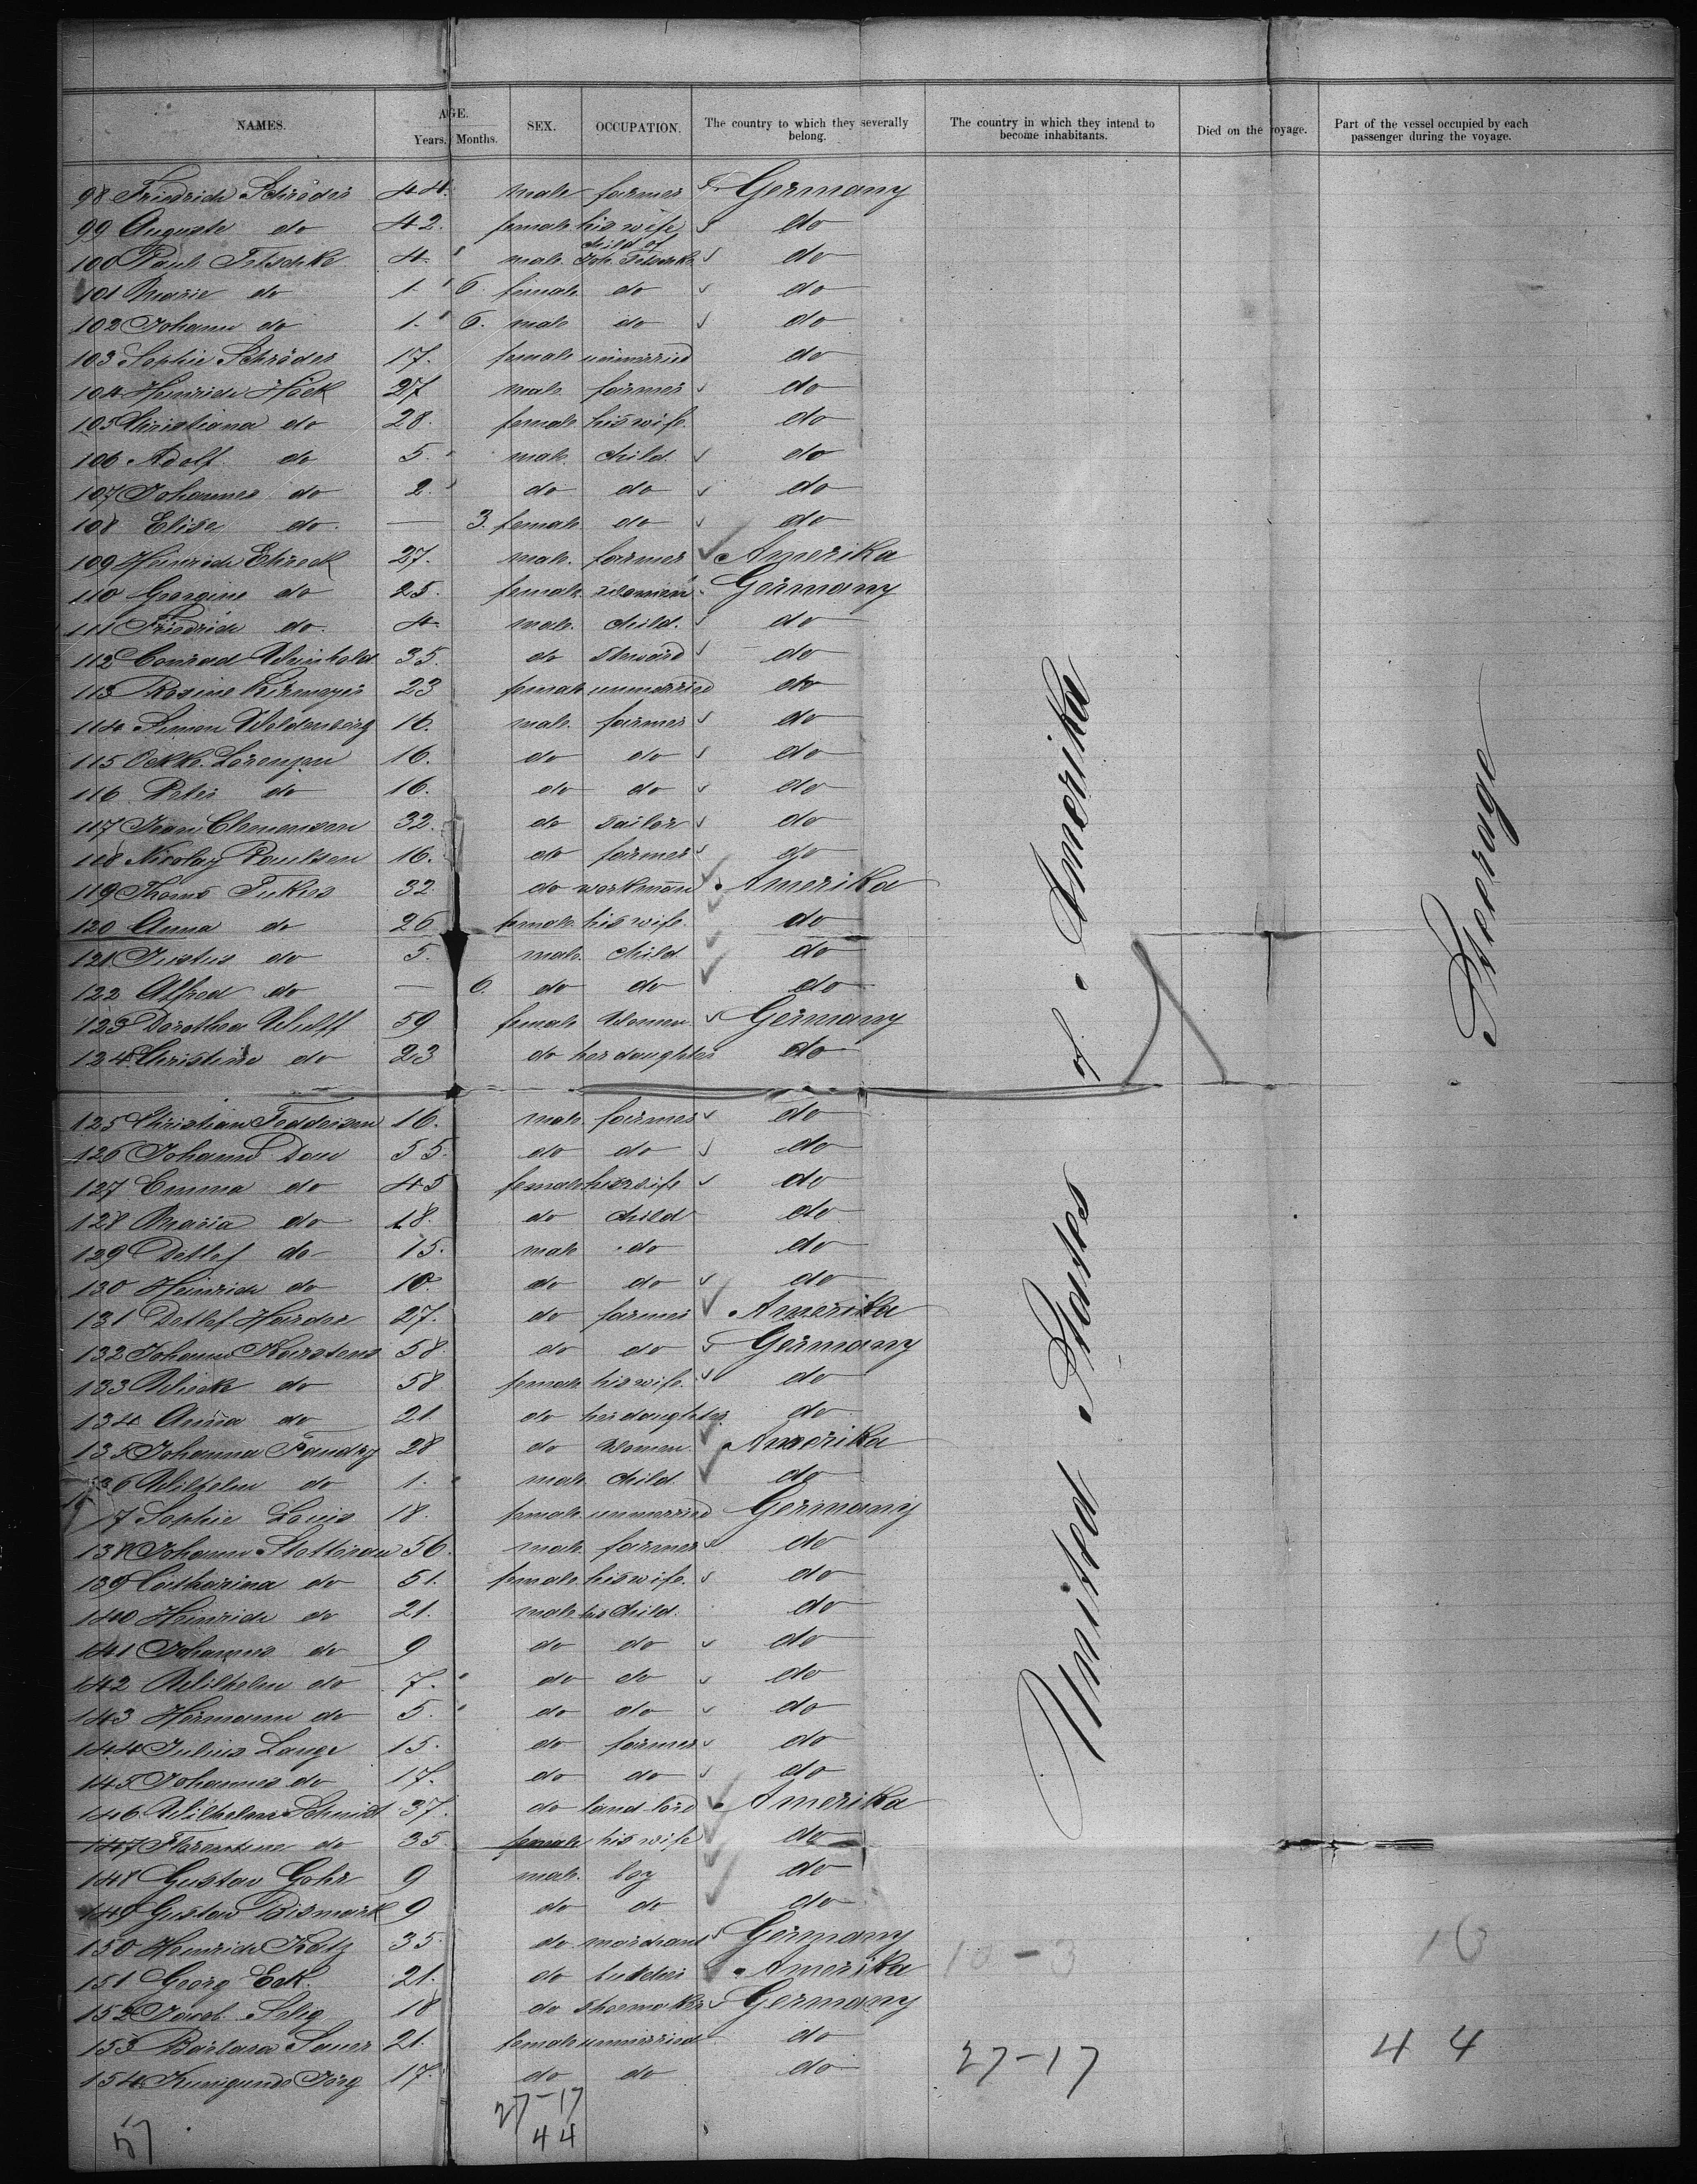 NAMES. AGE. Years. Months. SEX. OCCUPATION. The country to which they severally belong. The country in which they intend to become inhabitants. Died on the voyage. Part of the vessel occupied by each passenger during the voyage.
98 Friedrich Schröder 44. male farmer Germany
99 Auguste do 42. female his wife do
100 Paul Fetschke 4. male child of Joh. Fetschke do
101 Marie do 1. 6. female do do
102 Johann do 1. 6. male do do
103 Sophie Schröder 17. female unmarried do
104 Heinrich Höck 27 male farmer do
105 Christiana do 28. female his wife. do
106 Adolf do 5. male. child. do
107 Johannes do 2. do do do
108 Elise do. — 3. female do do
109 Heinrich 27. male. farmer Amerika
110 Georgine do 25. female Germany
111 Friedrich do. 4 male. child. do
112 Conrad Weinhold 35. do Steward do
113 Rosine Kirmeyer 23 female unmarried do
114 Simon 16. male. farmer do
115 Ockke. Lorenzen 16. do do do
116 Peter do 16. do do do
117 Clemensen 32. do Tailor do
118 Nicolay Paulsen 16. do farmer do
119 Thoms 32. do workmann Amerika
120 Anna do 26 female his wife. do
121 Justus do 5. male. child do
122 Alfred do — 6. do do do
123 Dorothea Wulff 59 female Women Germany
124 Christine do 23 do her daughter do
125 Christian Feddersen 16. male. farmer do
126 Johann Dau 55. do do do
127 Emma do 45 female his wife do
128 Maria do 18. do child do
129 Detlef do 15. male do do
130 Heinrich do 10. do do do
131 Detlef Harder 27. do farmer Amerika
132 Johann Karstens 58 do do Germany
133 Wiebke do 58 female his wife. do
134 Anna do 21 do her daughter do
135 Johanna 28 do Women. Amerika
136 Wilhelm do 1. male child. do
7 Sophie Louis 18. female unmarried Germany
138 Johann Stotterau 56. male. farmer do
139 Catharina do 51. female his wife. do
140 Heinrich do 21. male his child. do
141 Johannes do 9 do do do
142 Wilhelm do 7. do do do
143 Hermann do 5. do do do
144 Julius Lange 15. do farmer do
145 Johannes do 17. do do do
146 Wilhelm Schmidt 37. do land lord Amerika
147 Florentine do 35. female his wife do
148 Gustav Gohr 9 male. boy do
149 Gustav Bismark 9 do do do
150 Heinrich Katz 35. do merchant Germany
151 Georg Eck. 21. do butcher Amerika
152 Jacob Selig 18 do Shoemaker Germany
153 Barbara Sauer 21. female unmarried do
154 Kunigunde Jörg 17. do do do
United States of Amerika
Steerage
10-3
10
27-17
44
27-17
44
57